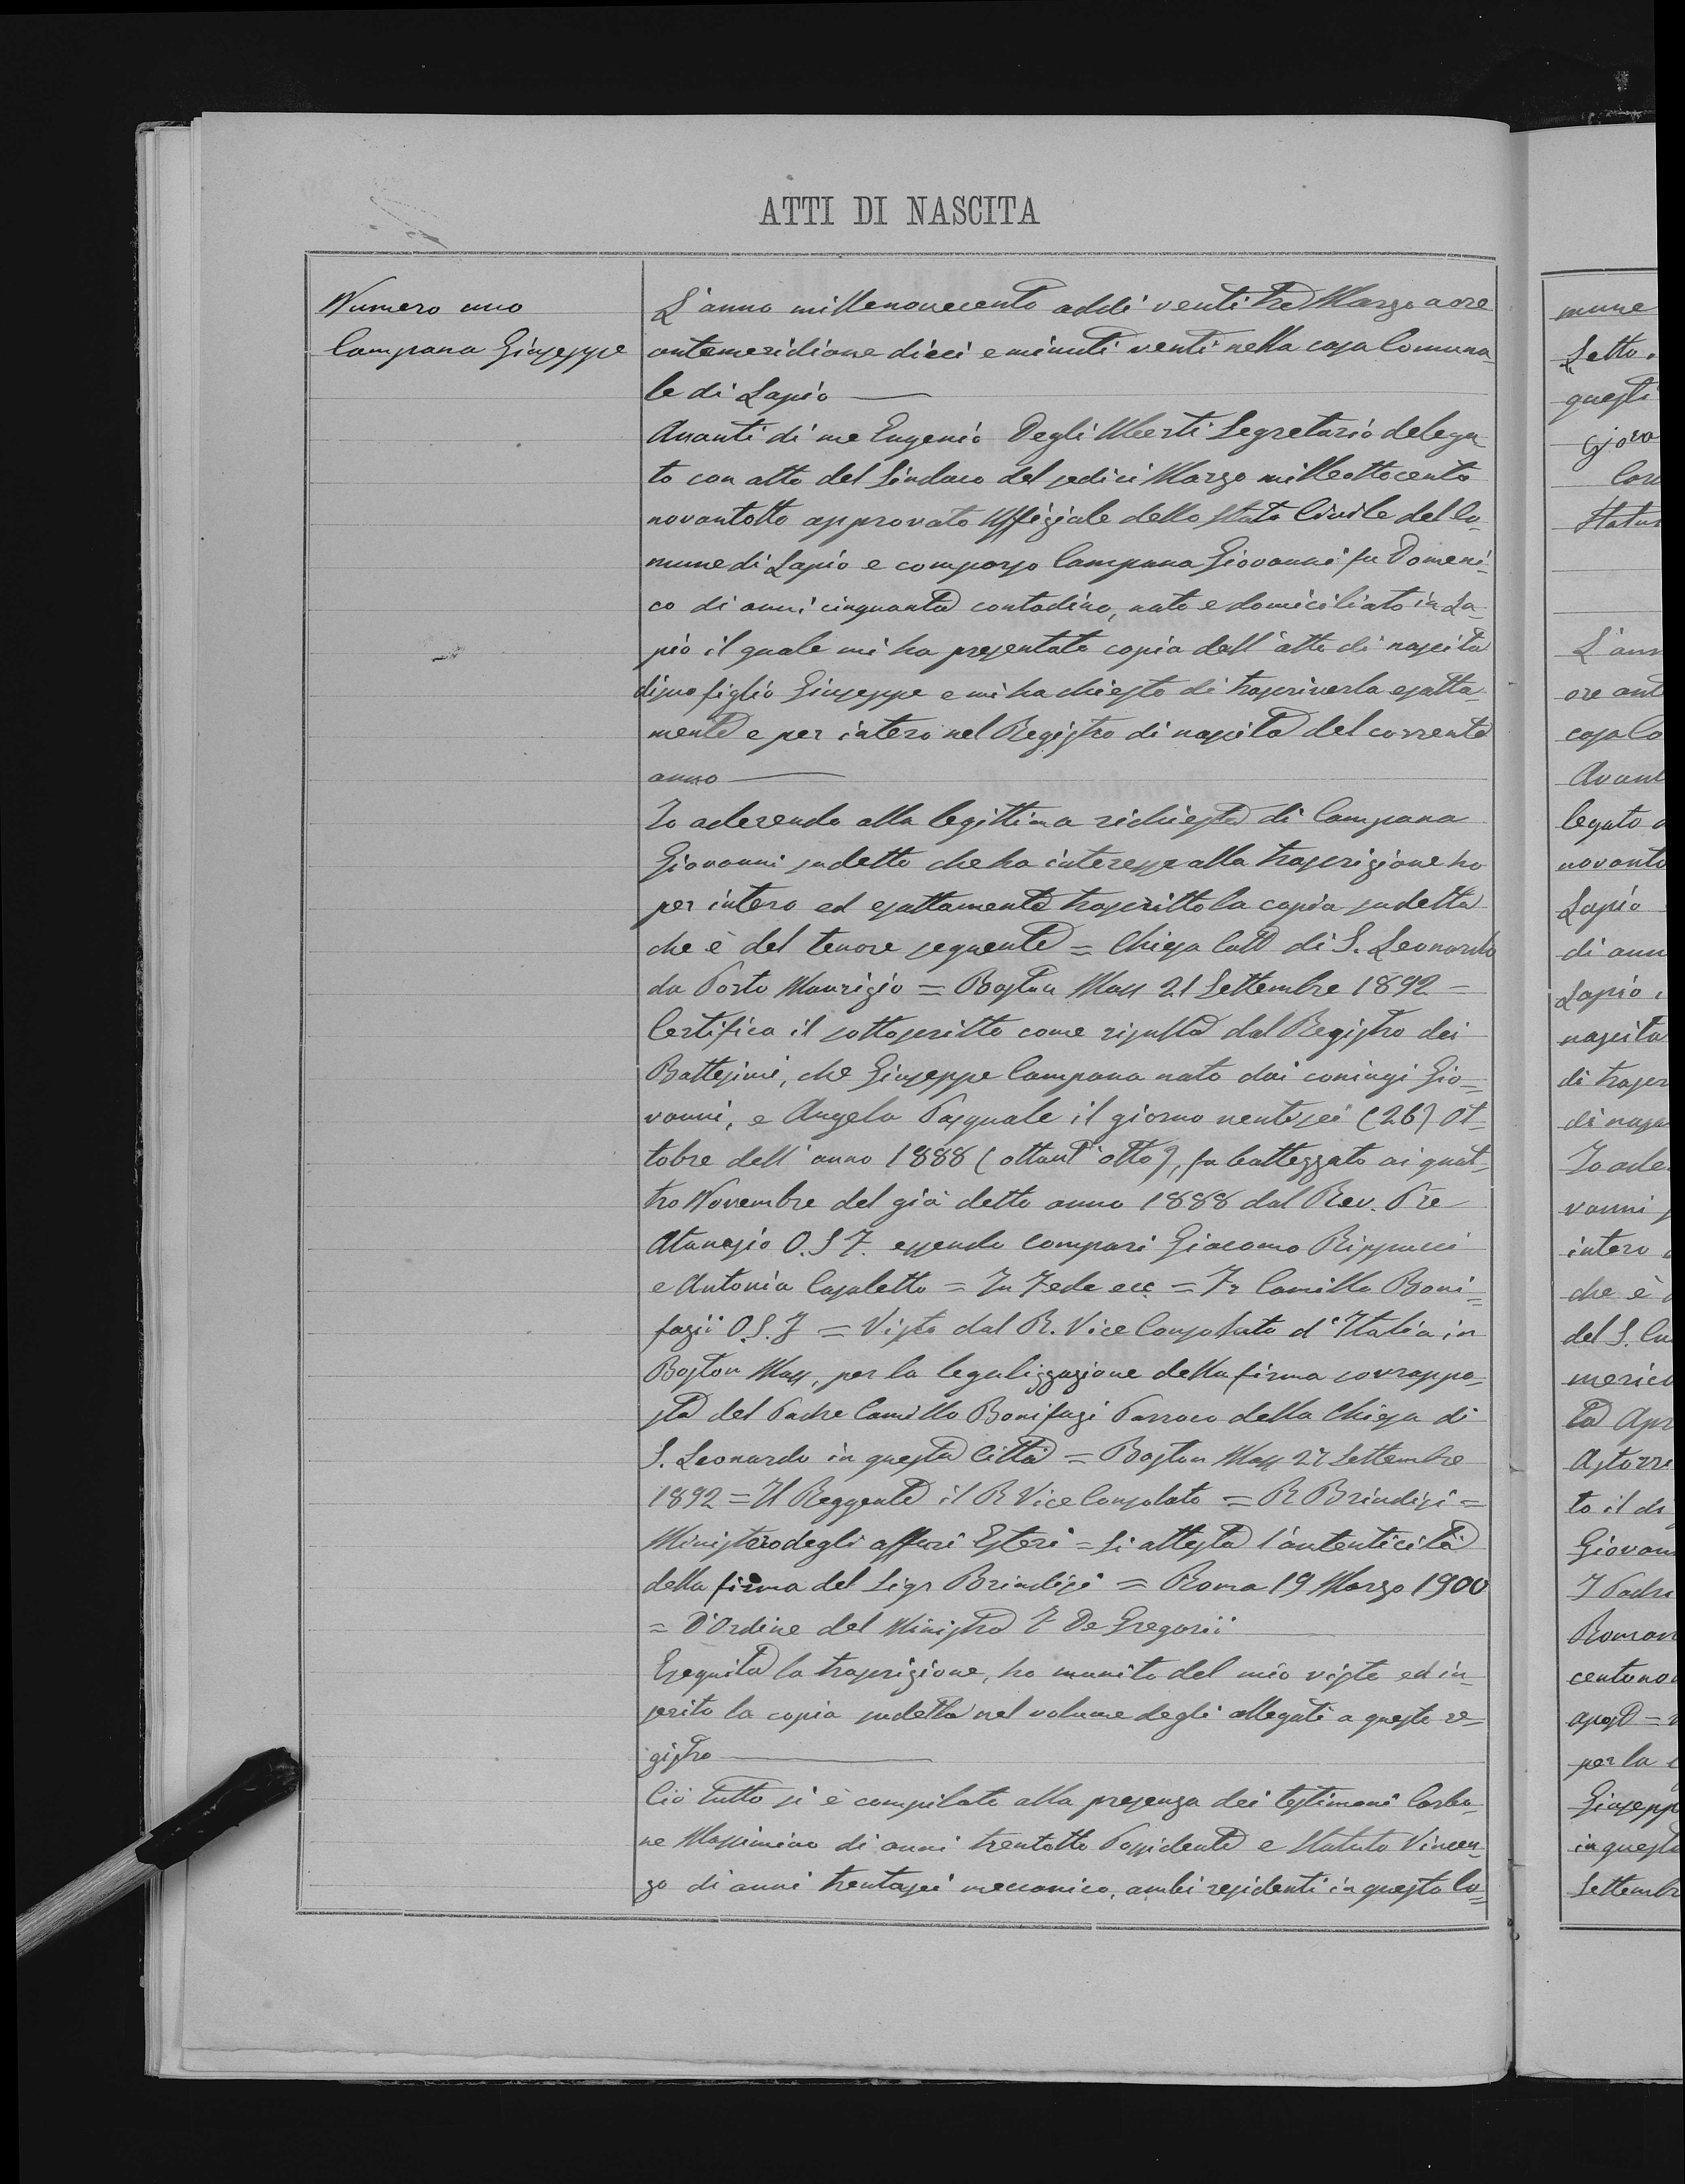 ATTI DI NASCITA
Numero uno
Campana Giuseppe
L'anno millenovecento addi ventitre Marzo a ore
antemeridiane dieci e minuti venti nella casa Comuna-
le di Lapio
Avanti di me Eugenio Degli Uberti Segretario delega-
to con atto del Sindaco del sedici Marzo milleottocento
novantotto approvato Uffiziale dello Stato Civile del Co-
mune di Lapio e comparso Campana Giovanni fu Domeni-
co di anni cinquanta contadino, nato e domiciliato in La-
pio il quale mi ha presentato copia dell'atto di nascita
di suo figlio Giuseppe e mi ha chiesto di trascriverla esatta-
mente e per intero nel Registro di nascita del corrente
anno
Io aderendo alla legittima richiesta di Campana
Giovanni sudetto che ha interesse alla trascrizione ho
per intero ed esattamente trascritto la copia sudetta
che è del tenore seguente = Chiesa Catt di S. Leonardo
da Porto Maurizio = Boston Mass 21 Settembre 1892 =
Certifica il sottoscritto come risulta dal Registro dei
Battesimi, che Giuseppe Campana nato dai coniugi Gio-
vanni, e Angela Pasquale il giorno ventisei (26) Ot-
tobre dell'anno 1888 (ottant'otto), fu battezzato ai quat-
tro Novembre del già detto anno 1888 dal Rev. Pre
Atanasio O.S.F. essendo compari Giacomo Rippucci
e Antonia Casaletto = In Fede ecc = Fr Camillo Boni-
fazii O.S.F = Visto dal R. Vice Consolato d'Italia in
Boston Mass, per la legalizzazione della firma sovrappo-
sta del Padre Camillo Bonifazi Parroco della Chiesa di
S. Leonardo in questa Città = Boston Mass 27 Settembre
1892 = Il Reggente il R Vice Consolato = R Brindisi =
Ministero degli affari Esteri = Si attesta l'autenticità
della firma del Sigr Brindisi = Roma 19 Marzo 1900
= D'Ordine del Ministro F De Gregorii
Eseguita la trascrizione, ho munito del mio visto ed in-
serito la copia sudetta nel volume degli allegati a questo re-
gistro
Ciò tutto si è compilato alla presenza dei testimoni Carbo-
ne Massimino di anni trentotto Possidente e Statuto Vincen-
zo di anni trentasei meccanico, ambi residenti in questo Co-
mune
Letto.
questi
Giova
Car
Statut
L'ann
ore ant
casa Co
Avant
legato
novanto
Lapio
di ann
Lapio
nascita
di trascr
di nasc
Io ade
vanni
intero
che è
del S.
merica
ta Apr
Astorre
to il di
Giovan
Padre
Roman
centono
apost =
per la
Giuseppe
in questa
Settembr